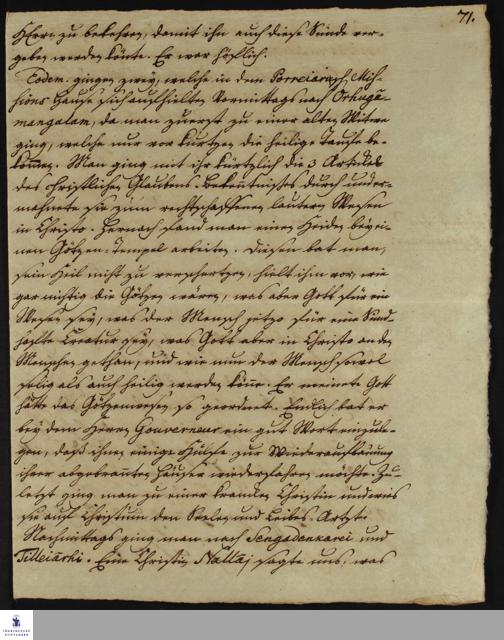 71.
HErrn zu bekehren, damit ihn auch diese Sünde ver-
geben werden könte. Er war höflich.
Eodem. gingen zwey, welche in dem Porreiarisch Mis-
sions Hause sich aufhielten Vormittags nach Orhuga-
mangalam, da man zuerst zu einer alten Witwe
ging, welche nur vor kurtzen die heilige Taufe be-
kommen. Man ging mit ihr kürtzlich die 3 Artickel
des christlichen Glaubens-Bekentnisses durch und er-
mahnete sie zum rechtschaffenen lautern Wesen
in Christo. Hernach fand man einen Heiden bey ei-
nen Götzen-Tempel arbeiten. Diesen bat man,
sein Heil nicht zu verschertzen, hielt ihm vor, wie
gar nichtig die Götzen wären, was aber Gott für ein
Wesen sey, was der Mensch jetzo für eine Sünd-
hafte Creatur sey, was Gott aber in Christo an den
Menschen gethan, und wie nun der Mensch sowol
selig als auch heilig werden könne. Er meinete Gott
hätte das Götzenwesen so geordnet. Endlich bat er
bey dem Herrn Gouverneur ein gut Wort einzule-
gen, daß ihnen einige Hülfe zur Wiederaufbauung
ihrer abgebranten Häuser wiederfahren möchte. Zu-
letzt ging man zu einer krancken Christin und wies
sie auf Christum den Seelen und Leibes-Artzt.
Nachmittags ging man nach Sengadenkarei und
Tilleiarhi. Eine Christin Nallaj sagte uns, was
FRANCKESCHE
STIFTUNGEN